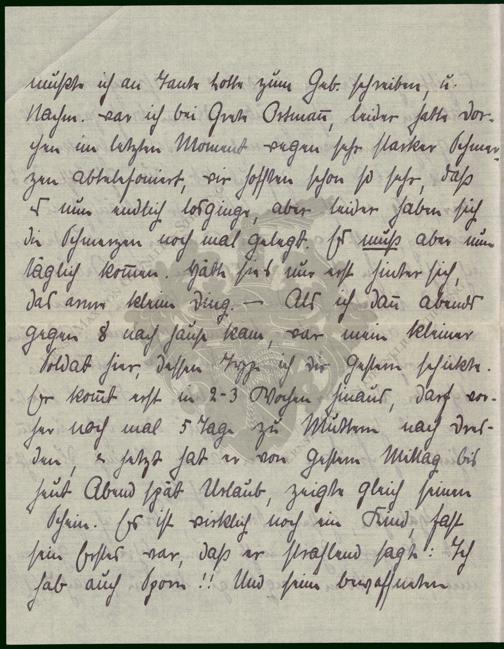 mußte ich an Tante Lotte zum Geb. schreiben, u.
Nachm. war ich bei Grete Ostmañ, leider hatte Dor-
chen im letzten Moment wegen sehr starker Schmer-
zen abtelefoniert, wir hofften schon so sehr, daß
es nun endlich losginge, aber leider haben sich
die Schmerzen noch mal gelegt. Es muß aber nun
täglich kom̄en. Hätte sie's nur erst hinter sich,
das arme kleine Ding. — Als ich dañ abends
gegen 8 nach Hause kam, war mein kleiner
Soldat hier, dessen ich dir gestern schickte.
Er kom̄t erst in 2-3 Wochen hinaus, darf vor-
her noch mal 5 Tage zu Muttern nach Dres-
den, u. jetzt hat er von gestern Mittag bis
heut Abend spät Urlaub, zeigte gleich seinen
Schein. Er ist wirklich noch ein Kind, fast
sein Erstes war, daß er strahlend sagte: Ich
hab auch Sporn!! Und seine bewaffneten